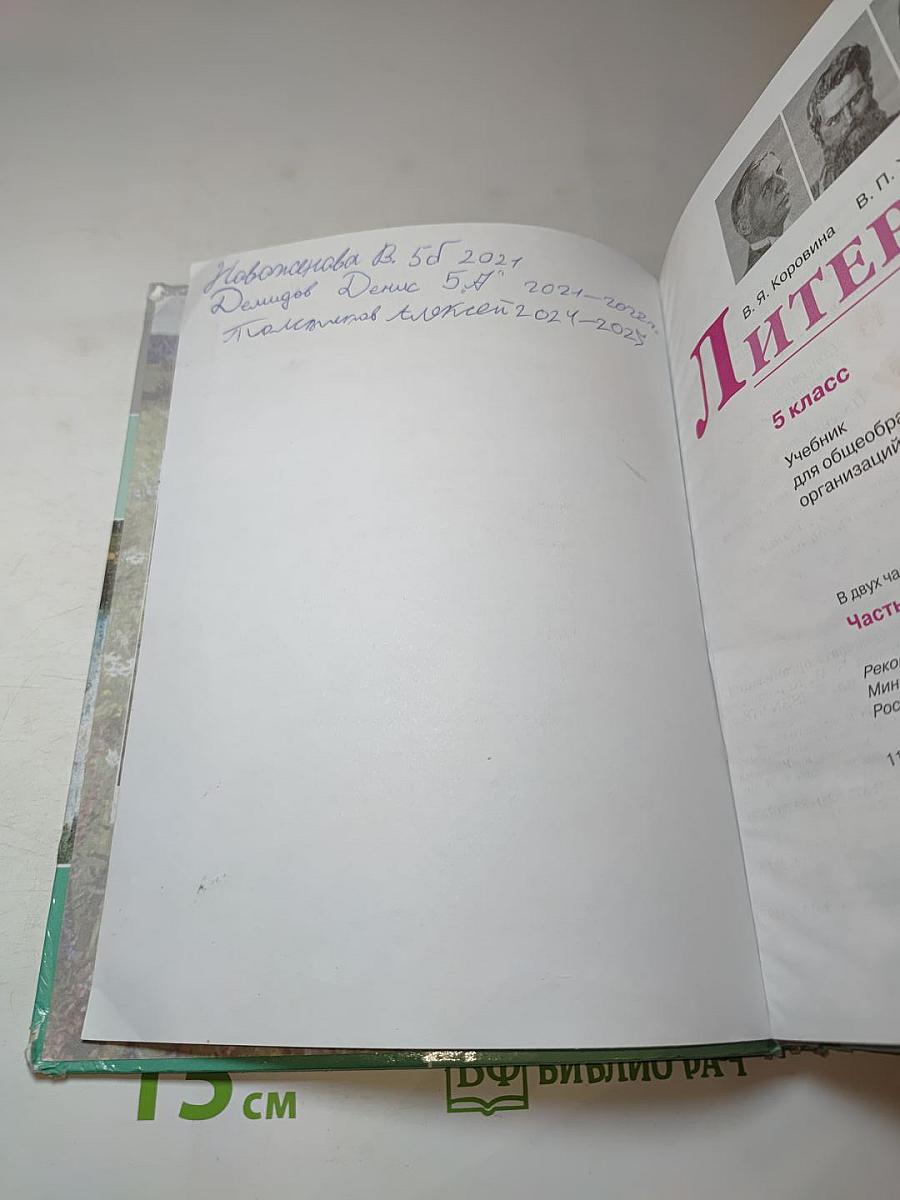 Новоженова В. 5б 2021
Демидов Денис 5 "А" 2021-2022г.
Алексей 2024-2025
В. Я. Коровина В. П.
ЛИТЕР
5 класс
Учебник
для общеобра
организаций
В двух ча
Часть
Реко
Мин
Рос
11
15 см
БФ